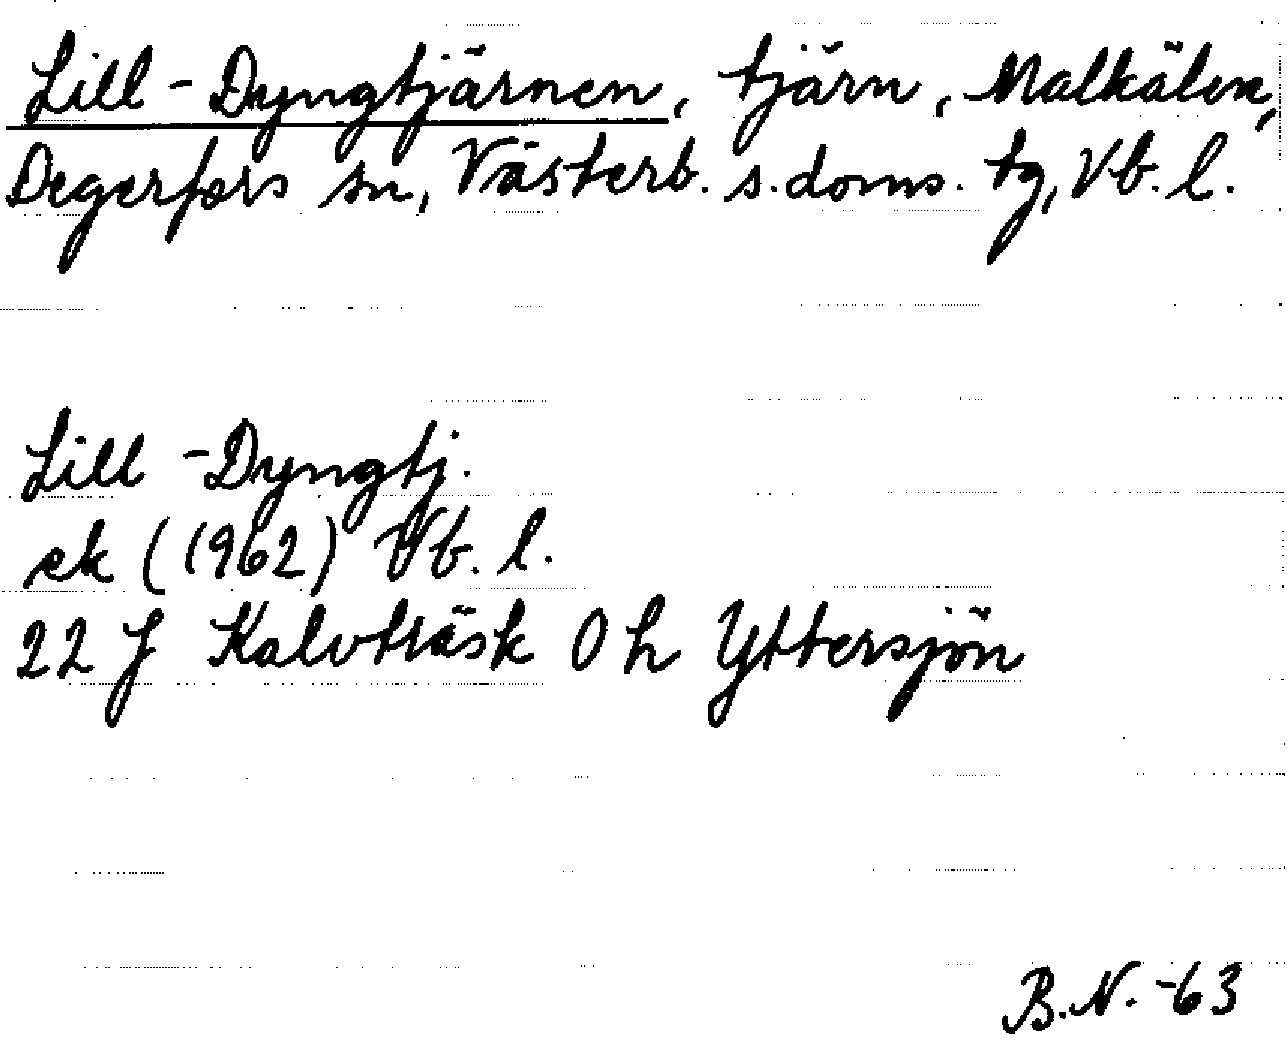 Lill-Dyngtjärnen, tjärn, Malkälen,
Degerfors sn, Västerb. s. doms. tg, Vb. l.
Lill-Dyngtj.
ek (1962) Vb. l.
22 J Kalvträsk 0 h Yttersjön
B.N. -63